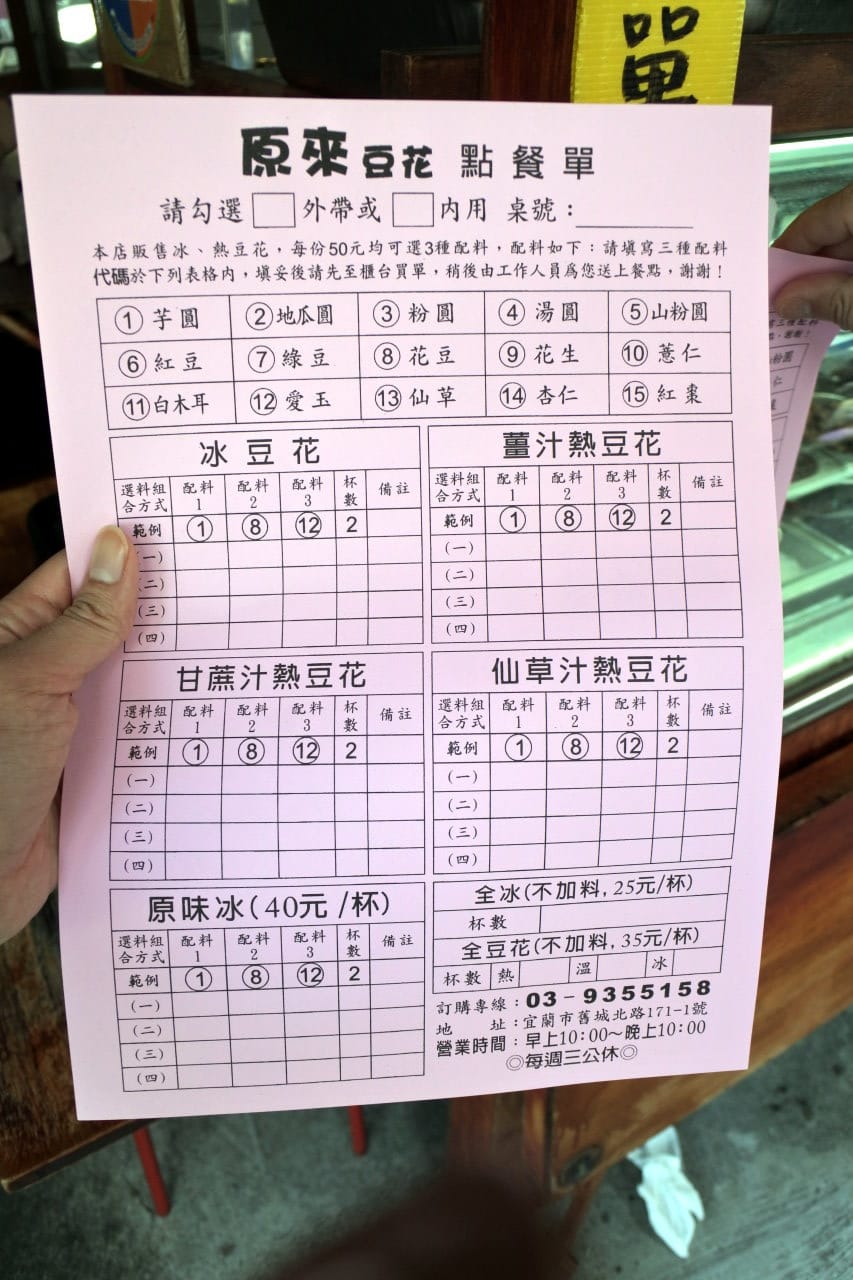 單
原來豆花 點餐單
請勾選 □ 外帶或 □ 內用 桌號：
本店販售冰、熱豆花，每份50元均可選3種配料，配料如下：請填寫三種配料
代碼於下列表格內，填妥後請先至櫃台買單，稍後由工作人員為您送上餐點，謝謝！
① 芋圓 ② 地瓜圓 ③ 粉圓 ④ 湯圓 ⑤ 山粉圓
⑥ 紅豆 ⑦ 綠豆 ⑧ 花豆 ⑨ 花生 ⑩ 薏仁
⑪ 白木耳 ⑫ 愛玉 ⑬ 仙草 ⑭ 杏仁 ⑮ 紅棗
冰豆花
選料組合方式 配料1 配料2 配料3 杯數 備註
範例 ① ⑧ ⑫ 2
(一)
(二)
(三)
(四)
薑汁熱豆花
選料組合方式 配料1 配料2 配料3 杯數 備註
範例 ① ⑧ ⑫ 2
(一)
(二)
(三)
(四)
甘蔗汁熱豆花
選料組合方式 配料1 配料2 配料3 杯數 備註
範例 ① ⑧ ⑫ 2
(一)
(二)
(三)
(四)
仙草汁熱豆花
選料組合方式 配料1 配料2 配料3 杯數 備註
範例 ① ⑧ ⑫ 2
(一)
(二)
(三)
(四)
原味冰(40元/杯)
選料組合方式 配料1 配料2 配料3 杯數 備註
範例 ① ⑧ ⑫ 2
(一)
(二)
(三)
(四)
全冰(不加料,25元/杯)
杯數
全豆花(不加料,35元/杯)
杯數 熱 溫 冰
訂購專線：03-9355158
地 址：宜蘭市舊城北路171-1號
營業時間：早上10:00～晚上10:00
◎每週三公休◎